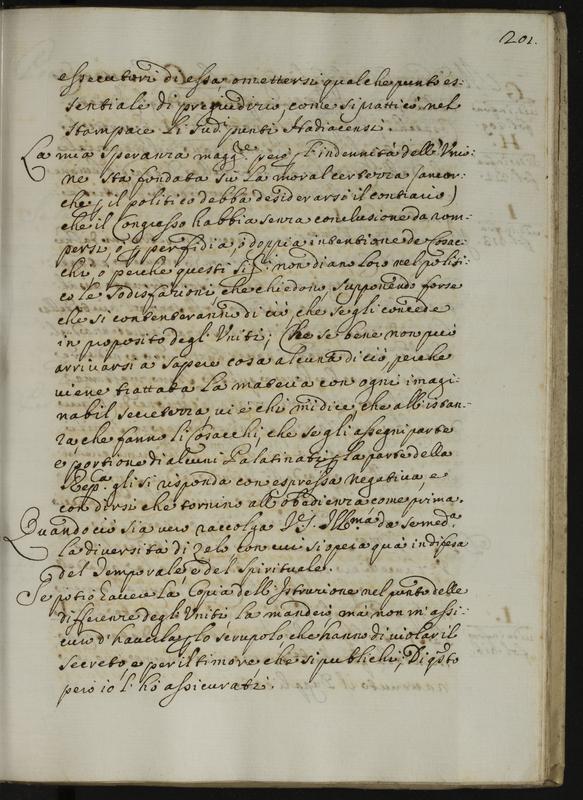 201.
essecutori di essa, omettersi qualche punto es-
sentiale di pregiudizio, come si prattico nel
stampare li sud.i punti Hadiacensi.
La mia speranza magg.re però p l'indennità dell'Unio-
ne sta fondata su la moral certezza (ancor-
che p il politico debba desiderarsi il contrario)
che il Congresso habbia senza conclusione da rom-
persi, ò p perfidia, ò doppia intentione de Cosac-
chi, ò perche questi Sig.ri non diano loro nel politi-
co le sodisfazioni, che chiedono, supponendo forse
che si contenteranno di ciò, che se gli concede
in proposito degl'Uniti; Che se bene non può
arrivarsi a sapere cosa alcuna di ciò, perche
viene trattata la materia con ogni imagi-
nabil secretezza, vi è chi mi dice, che all'istan-
za, che fanno li Cosacchi, che se gli assegni parte
e portione di alcuni Palatinati, p la parte della
Rep.ca gli si risponda con espressa negativa, e
con dirsi che tornino all'obedienza come prima.
Quando ciò sia vero raccolga V.S. Ill.ma da se med.a
la diversità di zelo con cui si opera quà in difesa
del Temporale, e del spirituale.
Se potrò havere la Copia dell'Istruzione nel punto delle
differenze degl'Uniti, la manderò, mà non m'assi-
curo d'haverla, p lo scrupolo, che hanno di violar il
secreto, e per il timore, che si publichi; Di q.sto
però io l'hò assicurati.